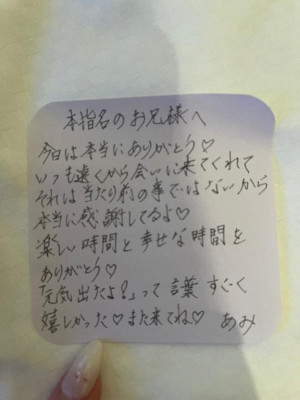 本指名のお兄様へ
今日は本当にありがとう♡
いつも遠くから会いに来てくれて
それは当たり前の事ではないから
本当に感謝してるよ♡
楽しい時間と幸せな時間を
ありがとう♡
「元気出たよ!」って言葉すごく
嬉しかった♡また来てね♡ あみ